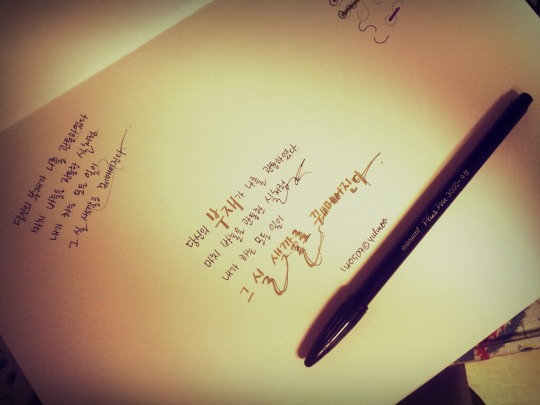 당신의 부재가 나를 관통하였다
마치 바늘을 관통한 실처럼
내가 하는 모든 일이
그 실 색깔로 꿰매어진다.
당신의 부재가 나를 관통하였다.
마치 바늘을 관통한 실처럼
내가 하는 모든 일이
그 실 색깔로 꿰매어진다.
110509@yulmoo
monami Plus Pen 3000